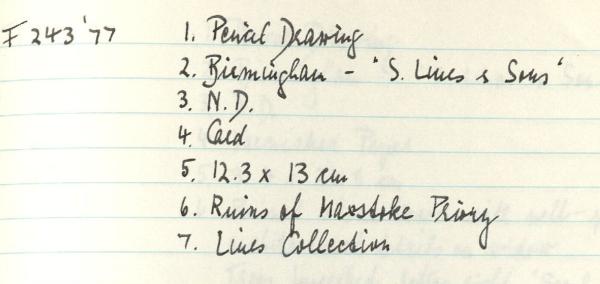 F 243'77 1. Pencil Drawing
2. Birmingham - 'S. Lines & Sons'
3. N.D.
4. Card
5. 12.3 x 13 cm
6. Ruins of Maxstoke Priory
7. Lines Collection